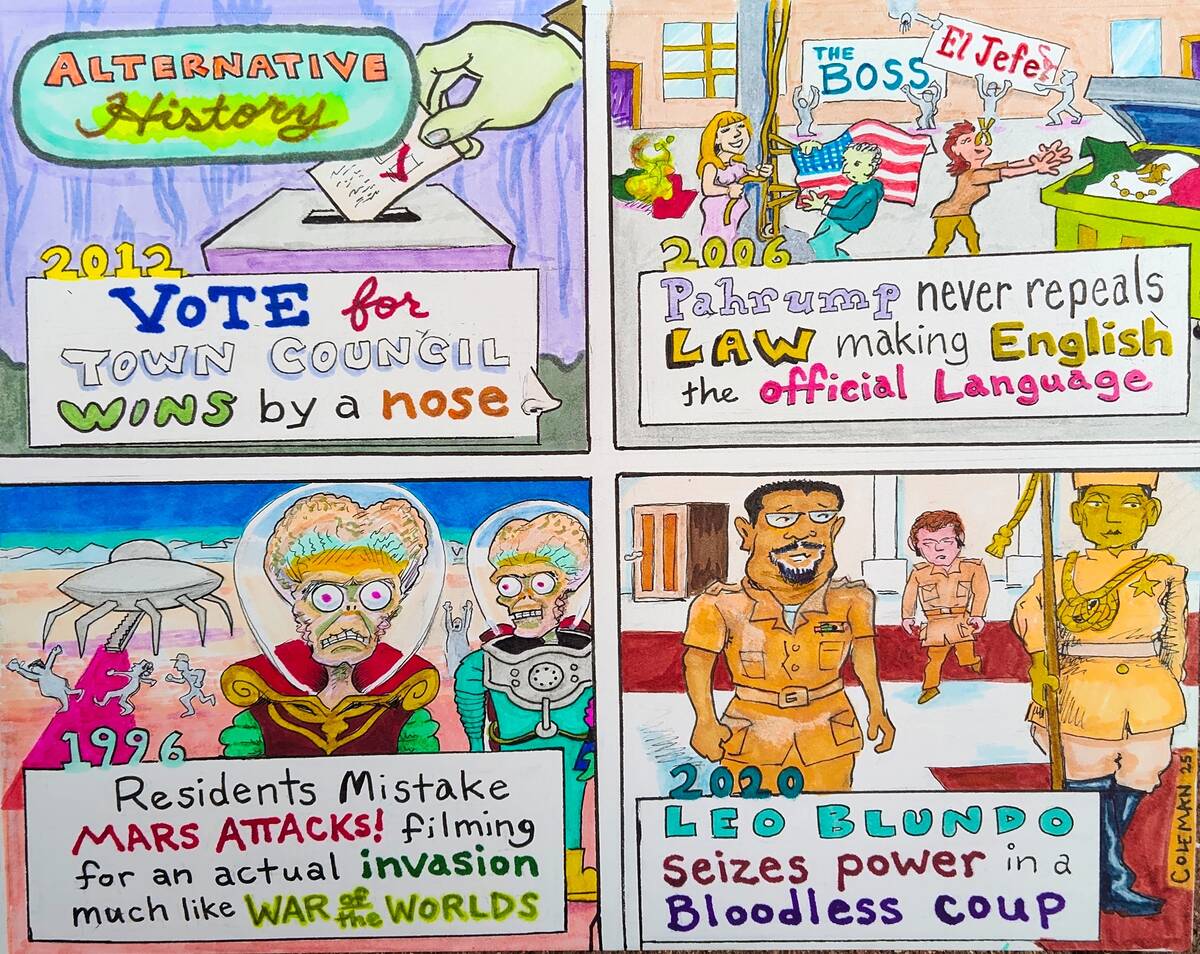 ALTERNATIVE
History
2012
VOTE for
TOWN COUNCIL
WINS by a nose
THE
BOSS
El Jefe
2006
Pahrump never repeals
LAW making English
the official Language
1996
Residents Mistake
MARS ATTACKS! filming
for an actual invasion
much like WAR of the WORLDS
2020
LEO BLUNDO
seizes power in a
Bloodless coup
COLEMAN 25